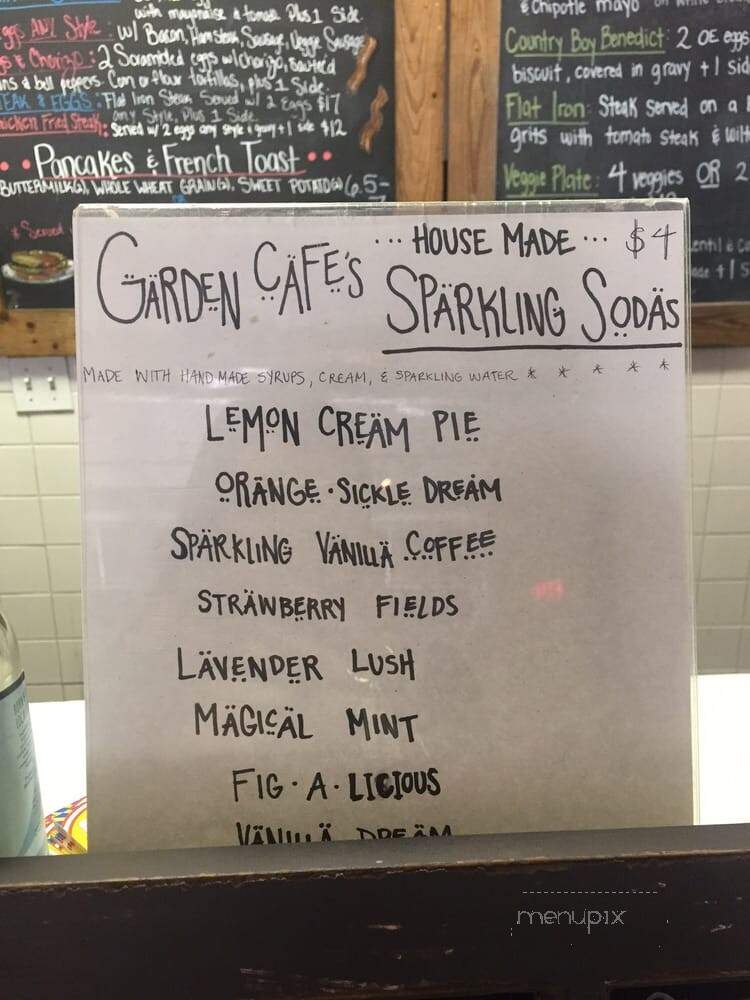 with mayonaise & tomato. Plus 1 Side.
Eggs ANY Style: w/ Bacon, Ham steak, Sausage, Veggie Sausage
Eggs & Chorizo: 2 Scrambled eggs w/ chorizo, sautéed
& bell peppers. Corn or flour tortillas, plus 1 Side.
STEAK & EGGS: Flat Iron Steak Served w/ 2 Eggs $17
any Style, Plus 1 Side.
Chicken Fried Steak: Served w/ 2 eggs any style & gravy + 1 side $12
Pancakes & French Toast
BUTTERMILK(G), WHOLE WHEAT GRAIN(G), SWEET POTATO(G) 6.5-
& Served
& Chipotle mayo on
Country Boy Benedict: 2 OE eggs
biscuit, covered in gravy + 1 sid
Flat Iron: Steak served on a
grits with tomato steak &
Veggie Plate: 4 veggies OR 2
GÄRDEN CÄFE'S ... HOUSE MADE ... $4
SPÄRKLING SODÄS
MADE WITH HAND MADE SYRUPS, CREAM, & SPARKLING WATER * * * * *
LEMON CREÄM PIE
ORÄNGE·SICKLE DREÄM
SPÄRKLING VÄNILLÄ COFFEE
STRÄWBERRY FIELDS
LÄVENDER LUSH
MÄGICÄL MINT
FIG·A·LICIOUS
VÄNILLÄ DREÄM
menupix